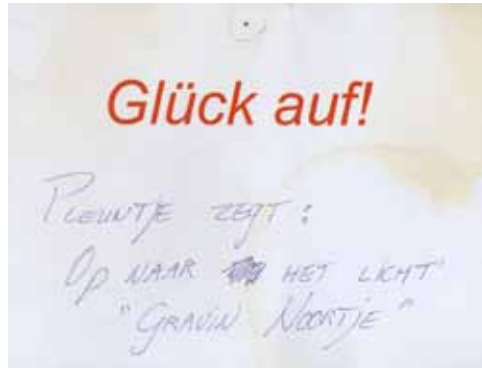 Glück auf!
PLEUNTJE ZEGT:
Op NAAR HET LICHT
"GRAVIN NOORTJE"